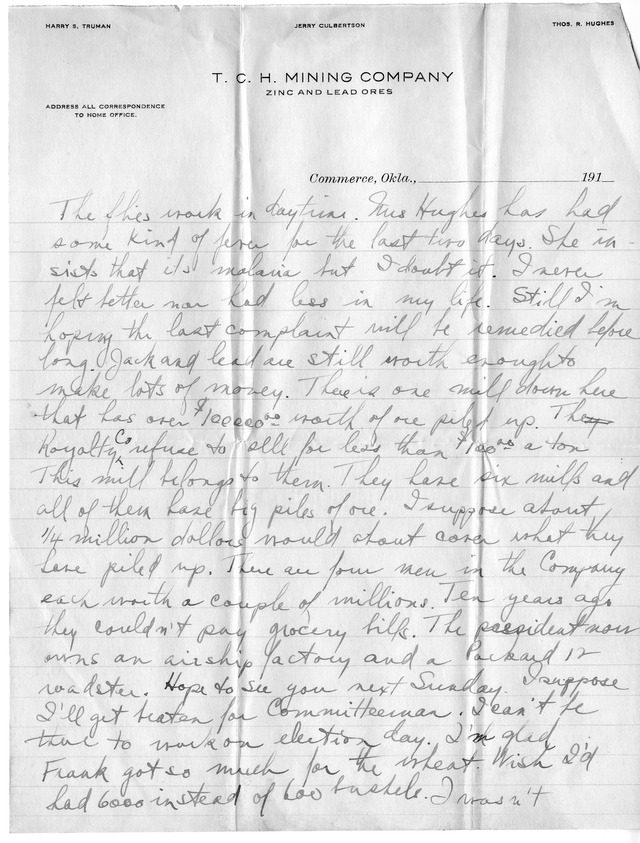 HARRY S. TRUMAN JERRY CULBERTSON THOS. R. HUGHES
T. C. H. MINING COMPANY
ZINC AND LEAD ORES
ADDRESS ALL CORRESPONDENCE
TO HOME OFFICE.
Commerce, Okla., 191
The flies work in daytime. Mrs Hughes has had
some kind of fever for the last two days. She in-
sists that its malaria but I doubt it. I never
felt better nor had less in my life. Still I'm
hoping the last complaint will be remedied before
long. Jack and lead are still worth enough to
make lots of money. There is one mill down here
that has over $100000.00 worth of ore piled up. The
Royalty Co refuse to sell for less than $100.00 a ton
This mill belongs to them. They have six mills and
all of them have big piles of ore. I suppose about
1/4 million dollars would about cover what they
have piled up. There are four men in the Company
each worth a couple of millions. Ten years ago
they couldn't pay grocery bills. The president now
owns an airship factory and a Packard 12
roadster. Hope to see you next Sunday. I suppose
I'll get beaten for Committeeman. I can't be
there to work on election day. I'm glad
Frank got so much for the wheat. Wish I'd
had 6000 instead of 600 bushels. I wasn't